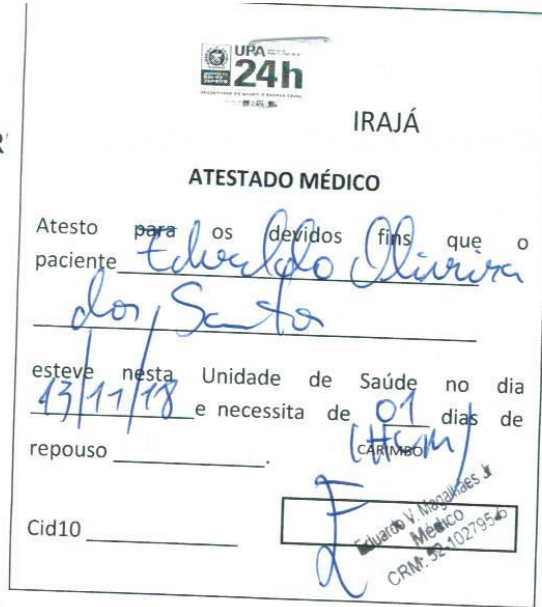 UPA
24h
IRAJÁ
ATESTADO MÉDICO
Atesto para os devidos fins que o
paciente Edvaldo Oliveira
dos Santos
esteve nesta Unidade de Saúde no dia
13/11/18 e necessita de 01 dias de
CARIMBO
repouso .
Eduardo V. Magalhães Jr
Médico
Cid10
CRM: 52-102795-0